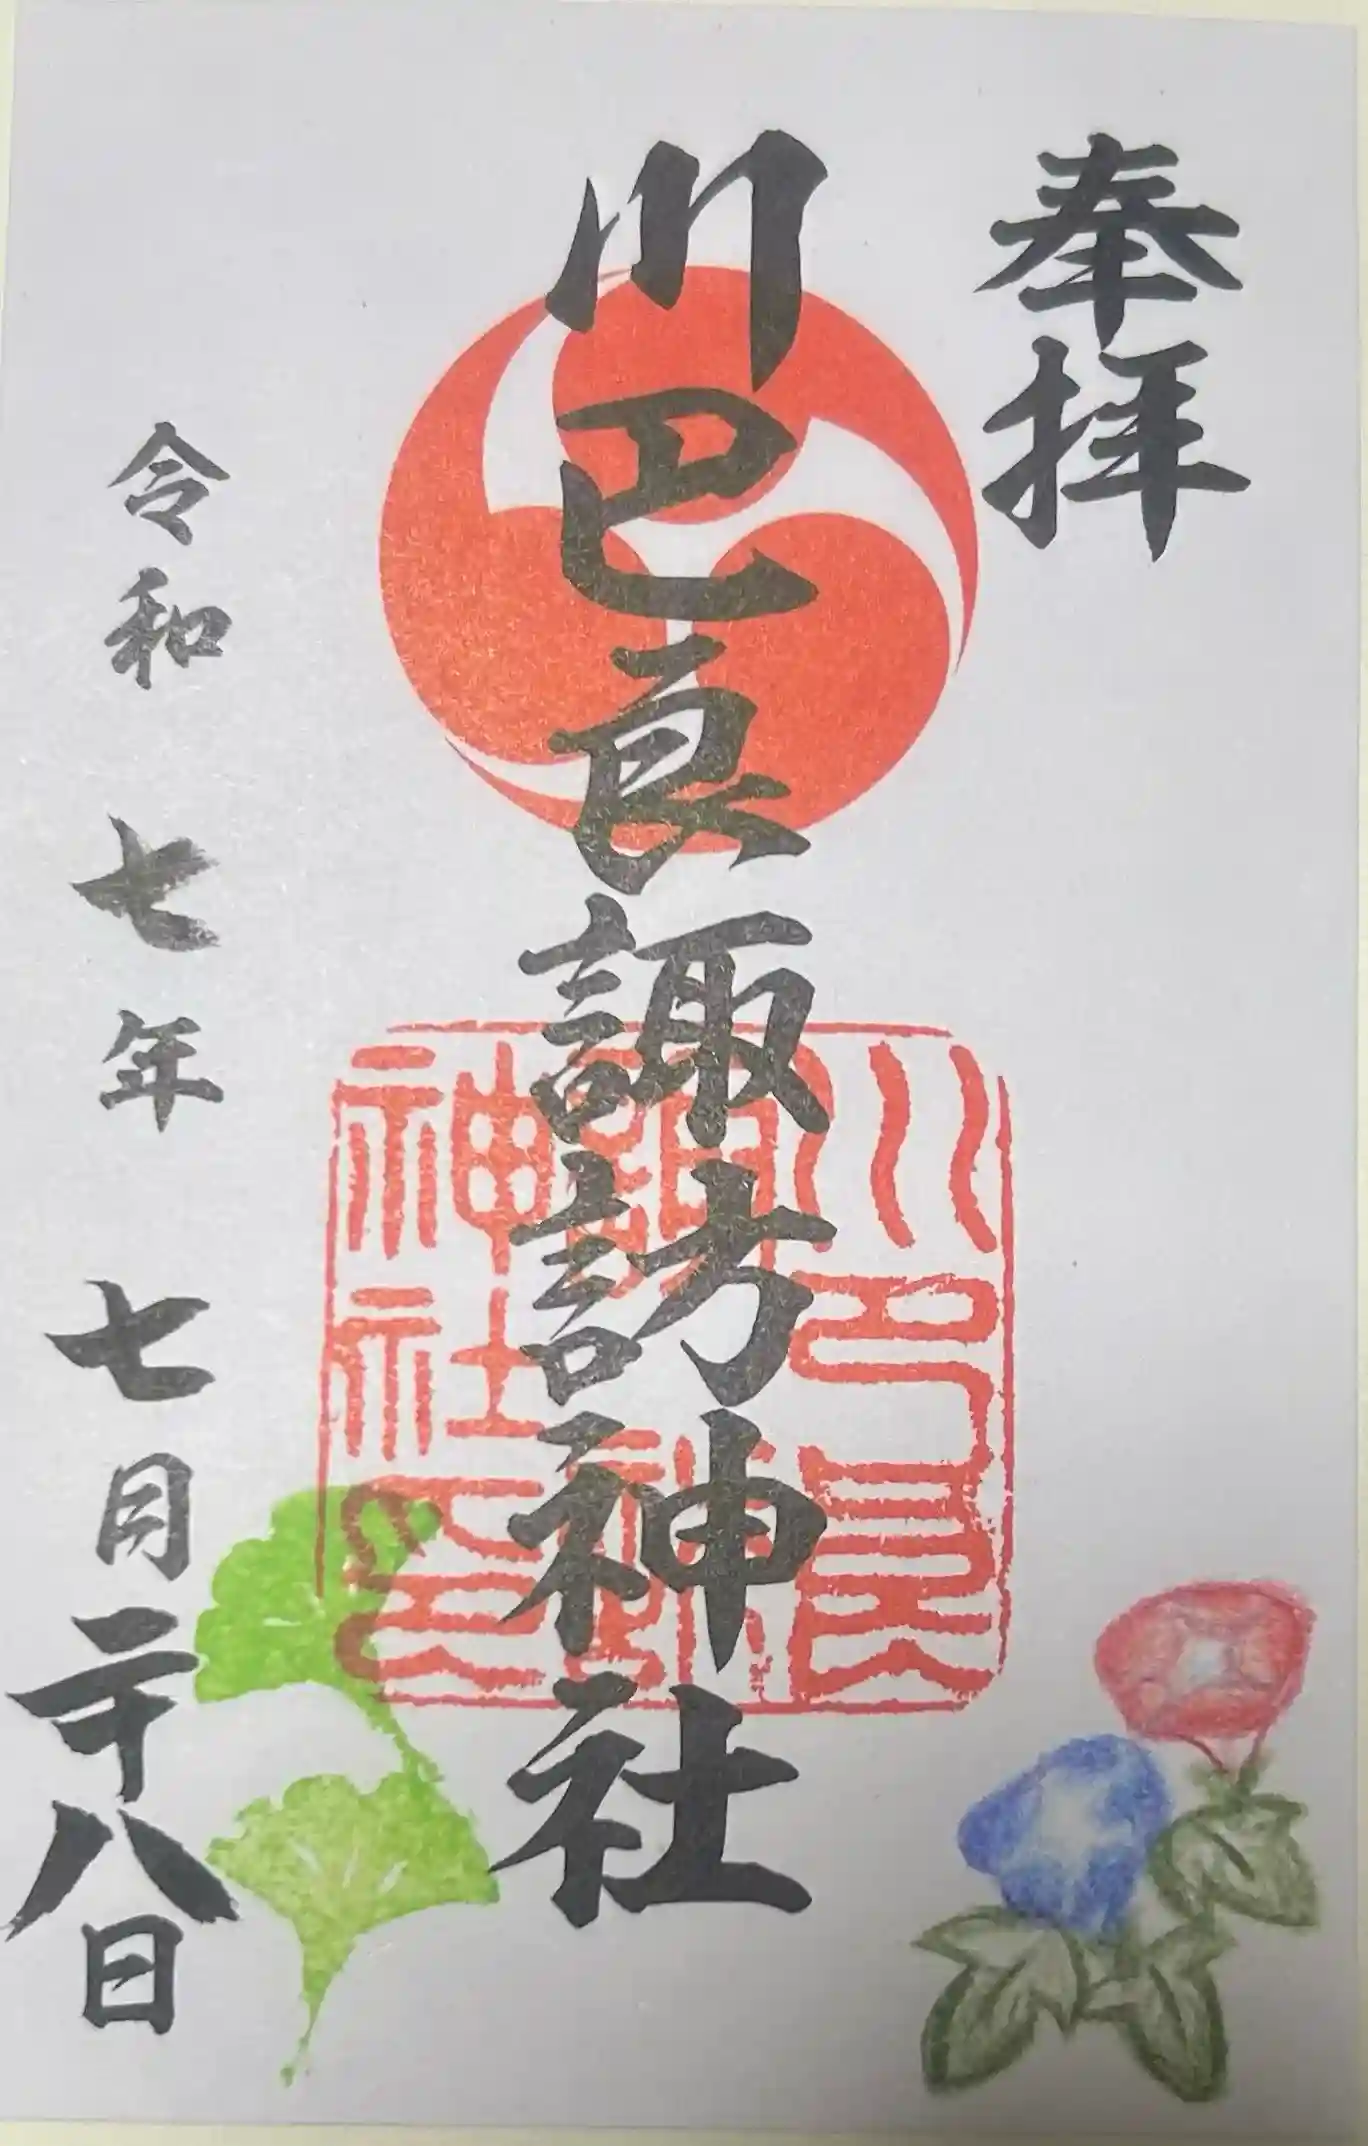 奉拝
川巴良諏訪神社
川巴良
諏訪
神社
神社之印
令和七年七月二十八日